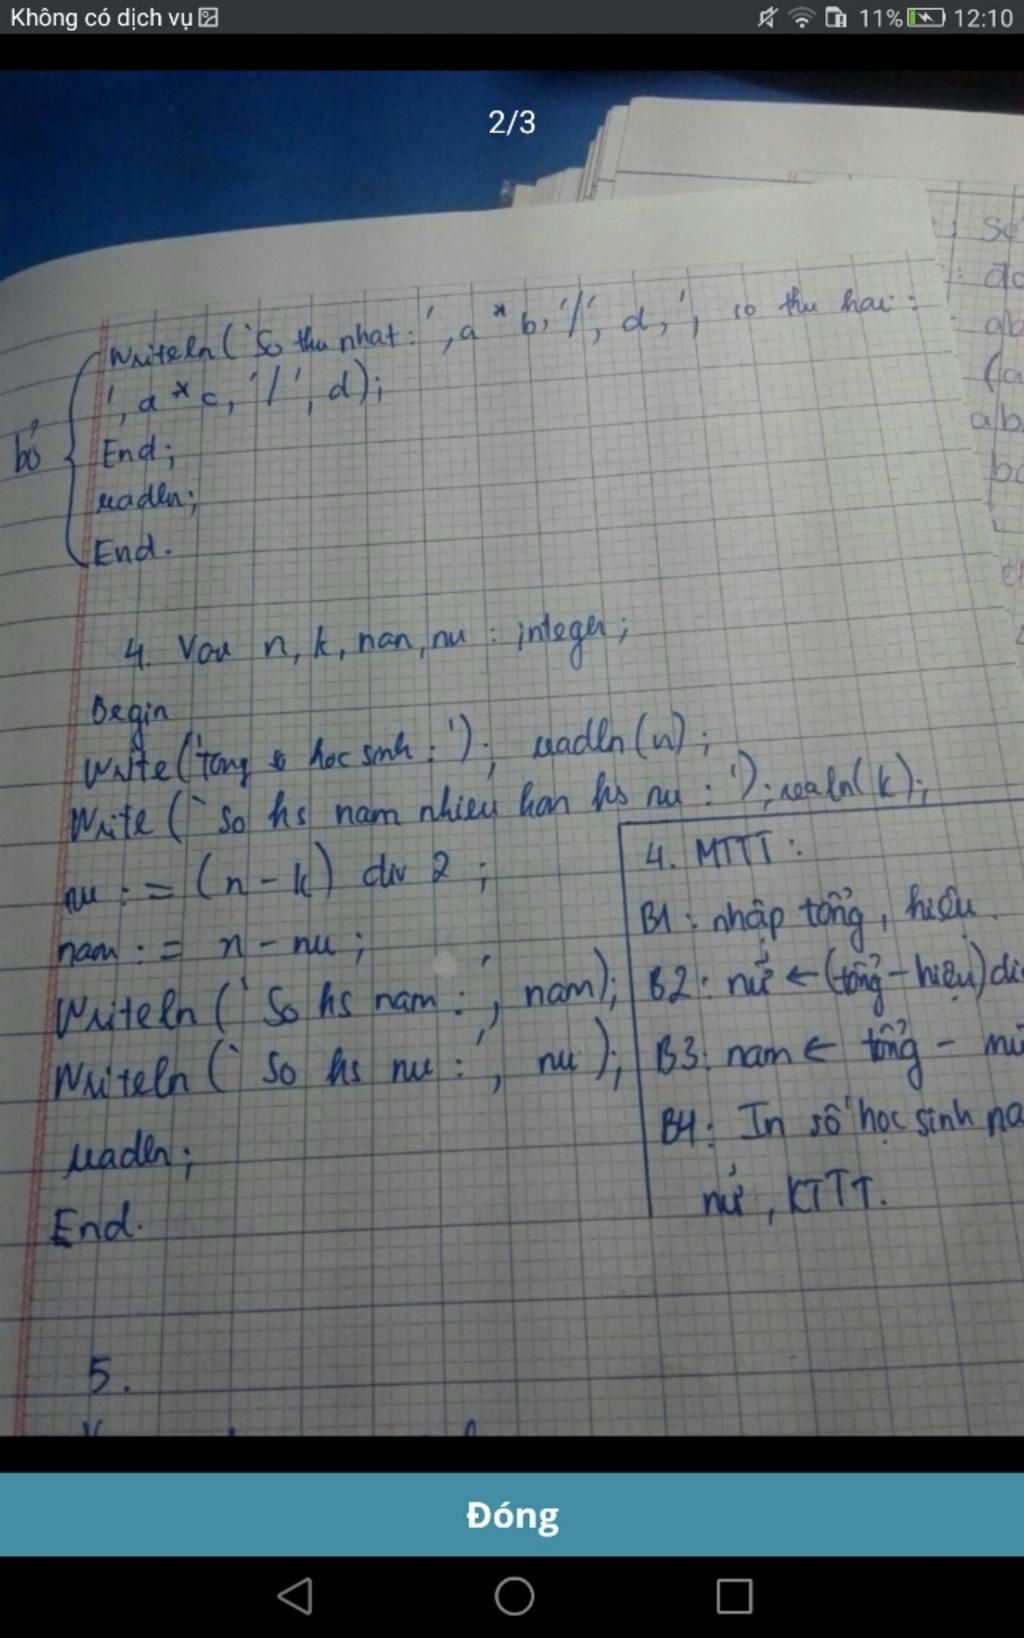 Không có dịch vụ
11% 12:10
2/3
Writeln('So thu nhat:', a * b, '/', d, ', so thu hai:
', a * c, '/', d);
bỏ
End;
readln;
End.
4. Var n, k, nan, nu : integer;
Begin
Write('tong so hoc sinh : '); readln(n);
Write('so hs nam nhieu hon hs nu : '); realn(k);
nu := (n - k) div 2 ;
nam := n - nu ;
Writeln('So hs nam : ', nam);
Writeln('So hs nu : ', nu);
readln;
End.
4. MTTT :
B1 : nhập tổng, hiệu
B2 : nữ ← (tổng - hiệu) di
B3 : nam ← tổng - nữ
B4 : In số học sinh na
nữ, KTTT.
5.
Đóng